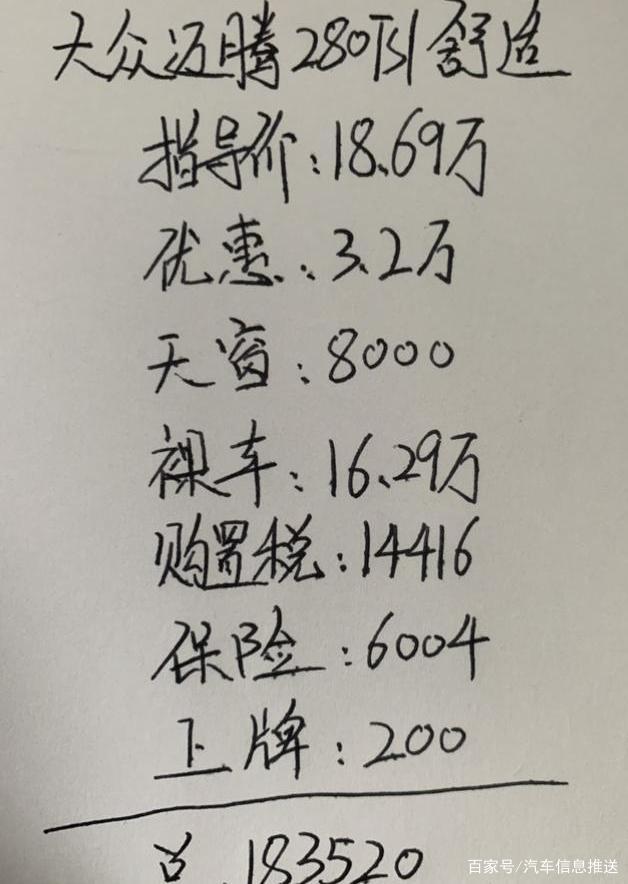 大众迈腾280TSI舒适
指导价:18.69万
优惠:3.2万
天窗:8000
裸车:16.29万
购置税:14416
保险:6004
上牌:200
总 183520
百家号/汽车信息推送